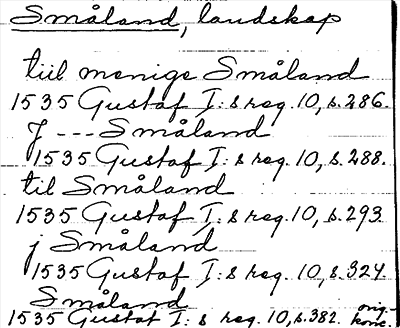 Småland, landskap
tiil menige Småland
1535 Gustaf I:s reg. 10, s. 286.
J --- Småland
1535 Gustaf I:s reg. 10, s. 288.
til Småland
1535 Gustaf I:s reg. 10, s. 293
j Småland
1535 Gustaf I:s reg. 10, s. 324.
Småland
1535 Gustaf I:s reg. 10, s. 382. orig.-konc.